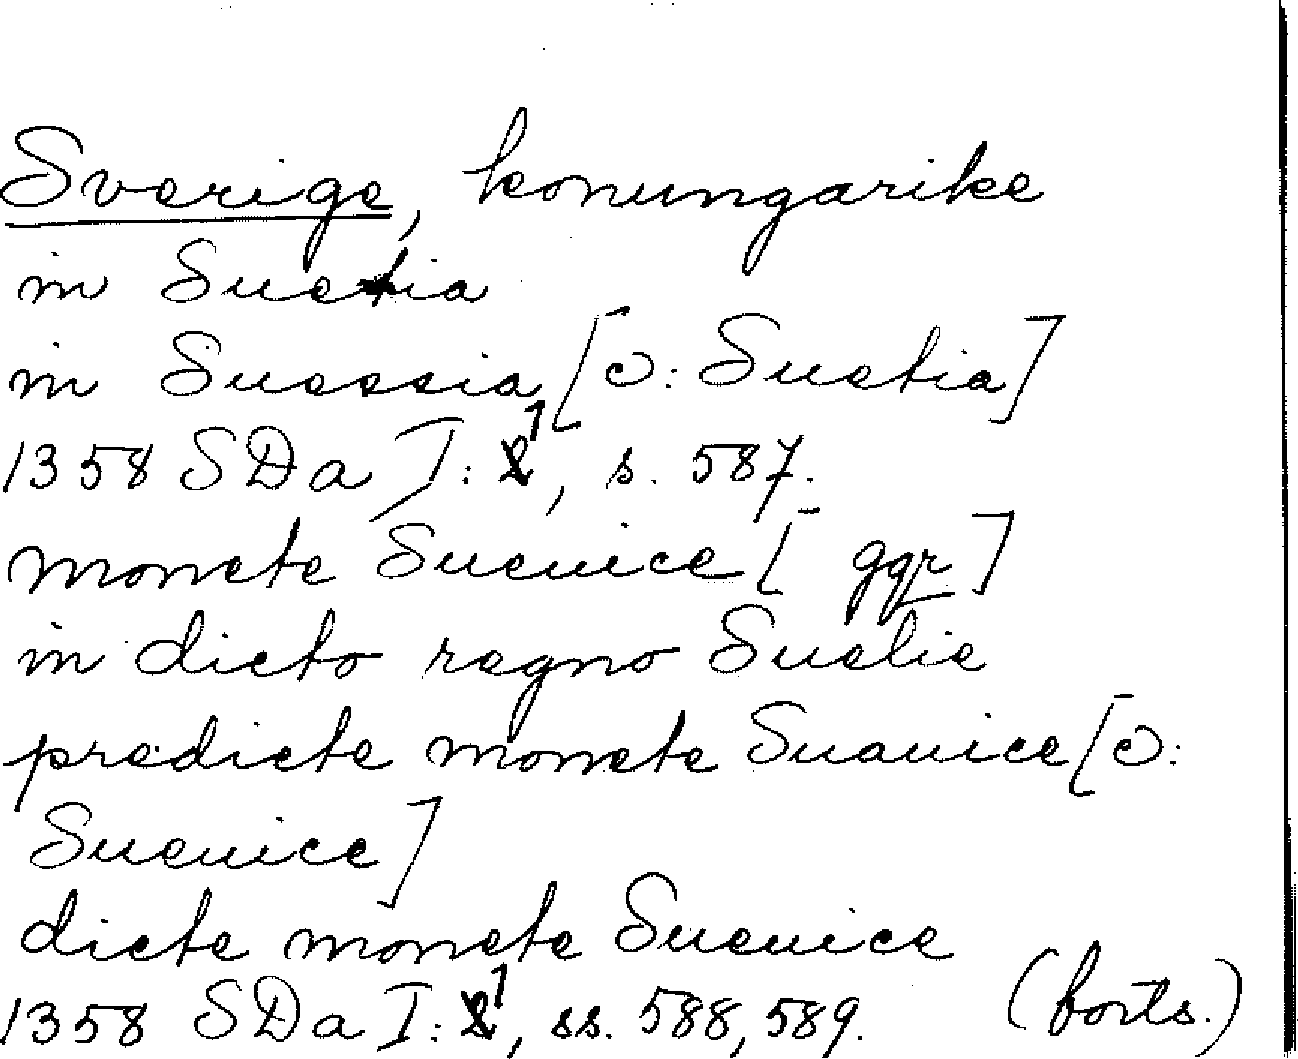 Sverige, konungarike
in Suetia
in Suessia [ɔ: Suetia]
1358 SDa I:1, s. 587.
monete Sueuice [ ggr ]
in dicto regno Suelie
predicte monete Suauice [ɔ:
Sueuice]
dicte monete Sueuice
1358 SDa I:1, ss. 588, 589. (forts.)